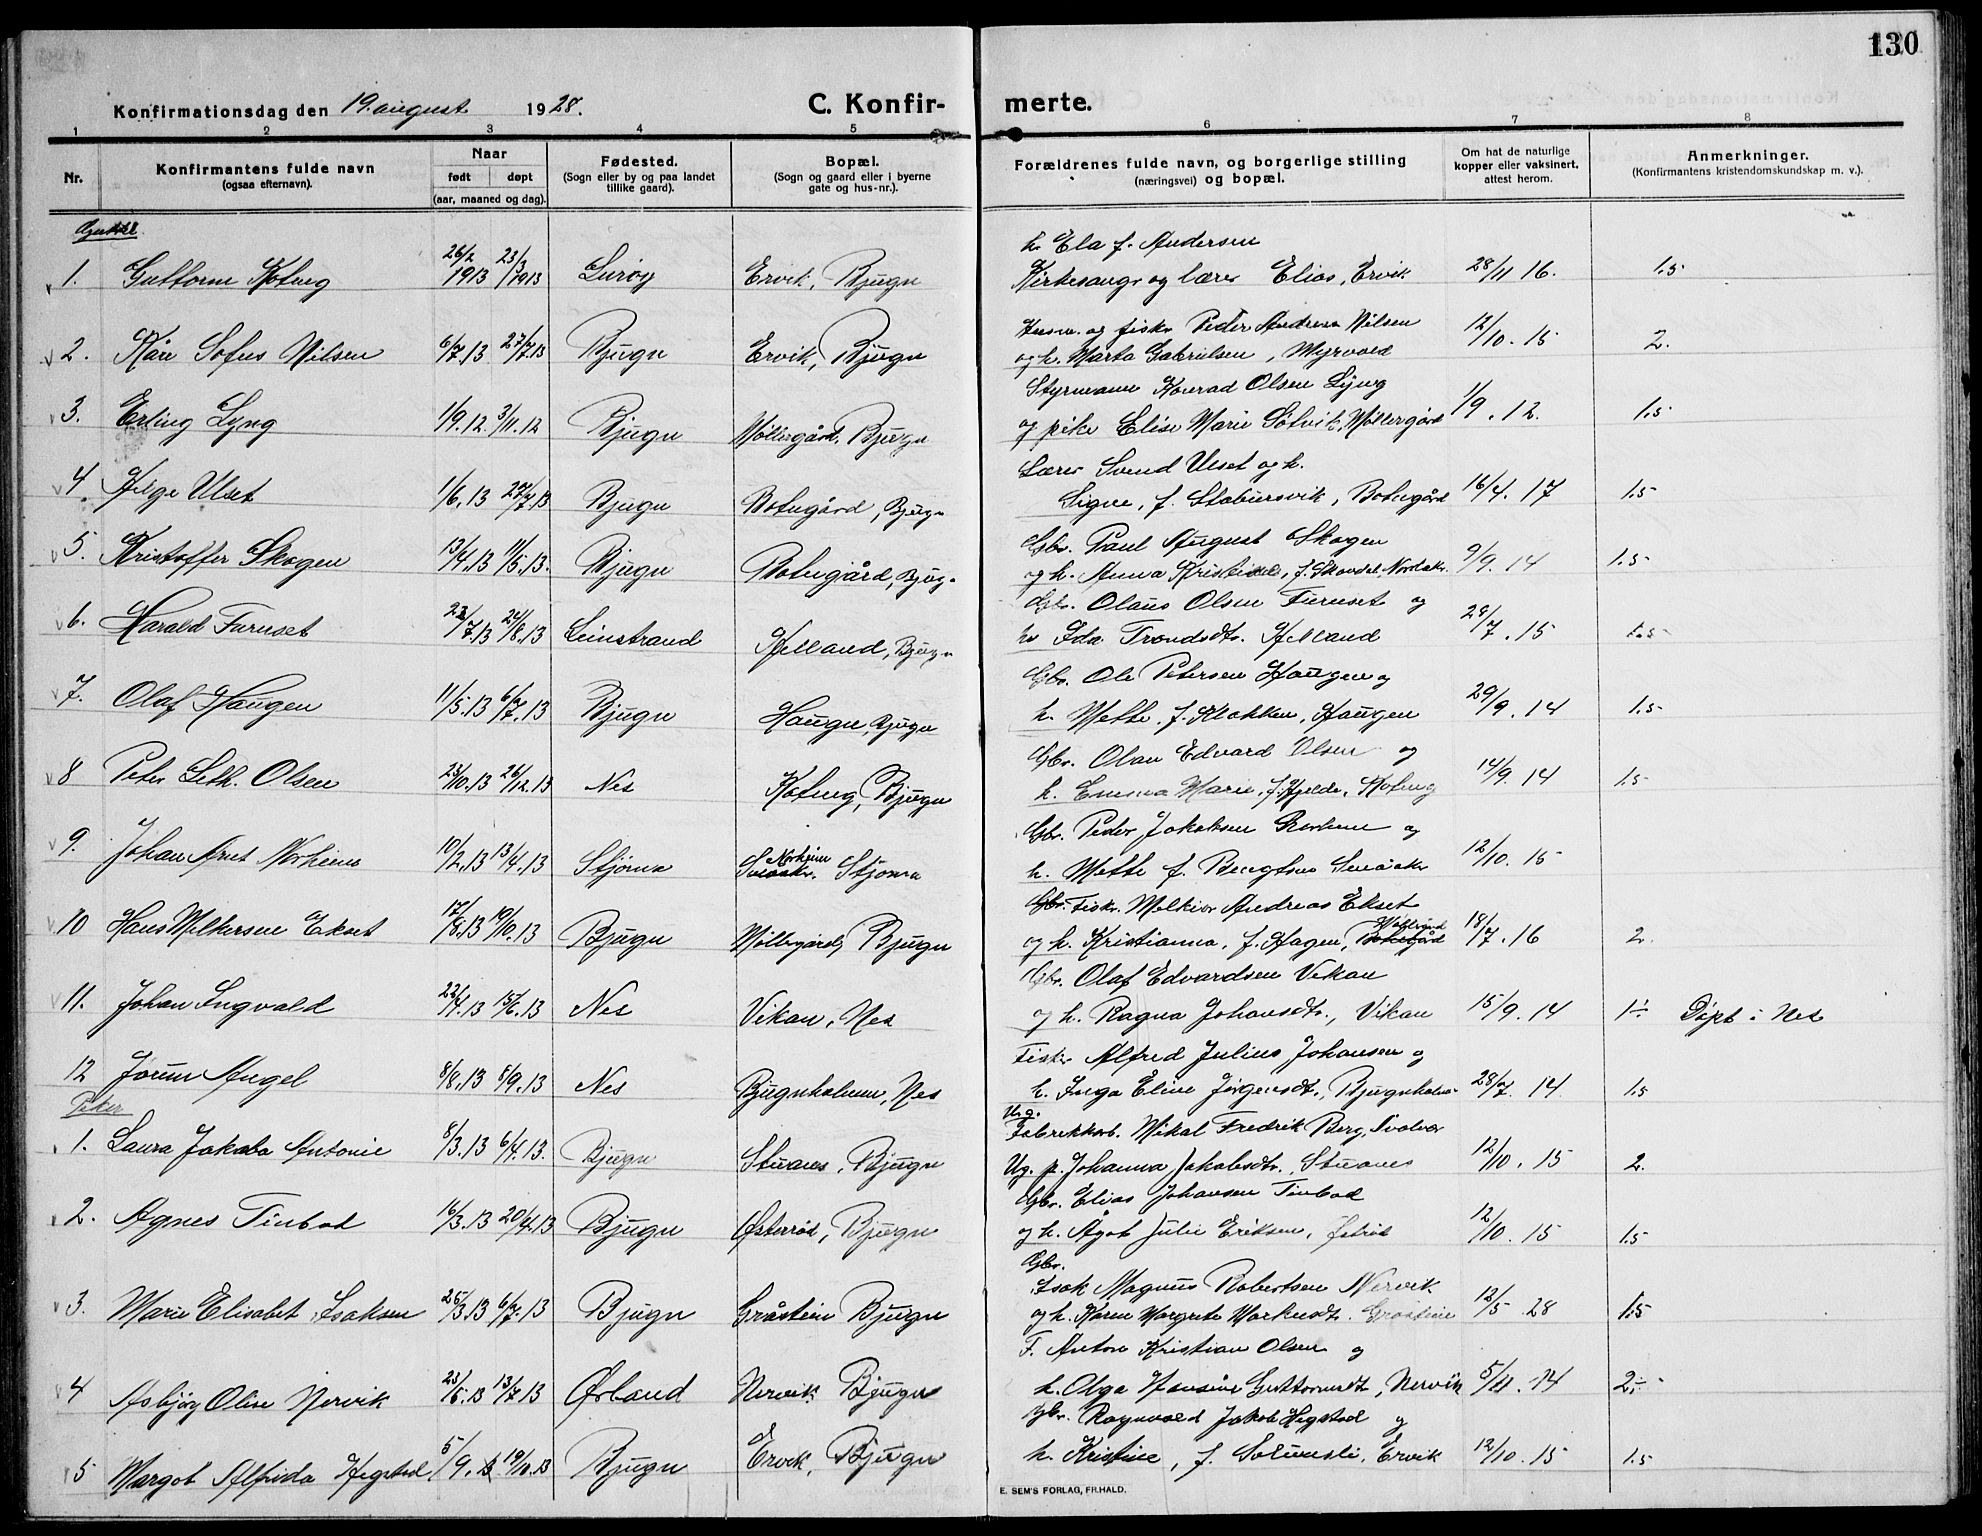 130
Konfirmationsdag den 19. august 1928.
C. Konfir-
merte.
1 2 3 4 5 6 7 8
Nr.
Konfirmantens fulde navn
(ogsaa efternavn).
Naar
født døpt
(aar, maaned og dag).
Fødested.
(Sogn eller by og paa landet
tillike gaard).
Bopæl.
(Sogn og gaard eller i byerne
gate og hus-nr.).
Forældrenes fulde navn, og borgerlige stilling
(næringsvei) og bopæl.
Om hat de naturlige
kopper eller vaksinert,
attest herom.
Anmerkninger.
(Konfirmantens kristendomskundskap m. v.).
h. Ela f. Andersen
1. Guttorm Koteng 26/2 1913 23/3 1913 Lurøy Ervik, Bjugn Kirkesangr og lærer Elias, Ervik 28/11 16. 1.5
Husm. og fiskr Peder Andreas Nilsen
2. Kåre Sofus Nilsen 6/7.13 27/7.13 Bjugn Ervik, Bjugn og h. Marta Gabrielsen, Myrvold 12/10.15 2.
Styrmann Konrad Olsen Lyng
3. Erling Lyng 1/9.12. 3/11.12 Bjugn Møllergård, Bjugn og pike Elise Marie Sølvik, Møllergård 1/9.12. 1.5
Lærer Svend Ulset og h.
4 Helge Ulset 1/6.13 27/7.13 Bjugn Botngård, Bjugn Signe, f. Stabursvik, Botngård 16/4.17 1.5
Gbr. Paul August Skogen
5. Kristoffer Skogen 13/4.13 11/5.13. Bjugn Botngård, Bjug. og h. Anna Kristine, f. 9/9.14 1.5
Gbr. Olaus Olsen Furuset og
6. Harald Furuset 23/7.13 24/8.13 Leinstrand Helland, Bjugn h. Ida Trondsdtr. Helland 28/7.15 1.5
Gbr. Ole Petersen Haugen og
7. Olaf Haugen 11/5.13 6/7.13 Bjugn Haugen, Bjugn h. Mette, f. Klakken, Haugen 29/9.14 1.5
Gbr. Olau Edvard Olsen og
8 Peter Seth. Olsen 23/10.13 26/12.13 Nes Koteng, Bjugn h. Emma Marie, f. Hjelde, Koteng 14/9.14 1.5
Gbr. Peder Jakobsen og
9. Johan Arnt Norheim 10/2.13 13/4.13 Stjørna Stjørna h. Mette f. Bengtsen 12/10.15
Gbr. Fiskr. Melkior Andreas Ekset
10 Hans Melkersen Ekset 17/8.13 19/10.13 Bjugn Møllegård, Bjugn og h. Kristianna, f. Hagen, Møllegård 18/7.16 2.
Gbr. Olaf Edvardsen Vikan
11. Johan Ingvald 22/4.13 15/6.13 Nes Vikan, Nes og h. Ragna Johansdtr., Vikan 15/9.14 1÷ Døpt i Nes
Fiskr Alfred Julius Johansen og
12 Jørun Angel 8/8.13 8/9.13 Nes Bjugnholmen, Nes h. Inga Eline Jørgensdt., Bjugnholm 28/7.14. 1.5
Piker
Ug.
Fabrikkarb. Mikal Fredrik Berg, Svolvær
1. Laura Jakoba Antonie 8/3.13 6/4.13. Bjugn Stuanes, Bjugn Ug. p. Johanna Jakobsdtr., Stuanes 12/10.15 2.
Gbr. Elias Johansen Tinbod
2. Agnes Tinbod 16/3.13 20/4.13 Bjugn Østerrød, Bjugn og h. Ågot Julie Eriksen, 12/10.15 1.5
Gbr.
Isak Magnus Robertsen Nervik
3. Marie Elisabet Isaksen 25/3.13 6/7.13 Bjugn Gråstein Bjugn og h. Karen Margrete Markusdtr. Gråstein 12/5 28 1.5
F. Anton Kristian Olsen og
4 Asbjørg Oline Nervik 23/5.13 13/7.13 Ørland Nervik Bjugn h. Olga Hansine Guttormsdt, Nervik 5/11.14 2÷
Gbr. Ragnvald Jakob Hegstad og
5 Margot Alfrida Hegstad 5/9.13 19/10.13 Bjugn Ervik, Bjugn h. Kristine, f. Solemsli, Ervik 12/10.15 1.5
E. SEM'S FORLAG, FR.HALD.